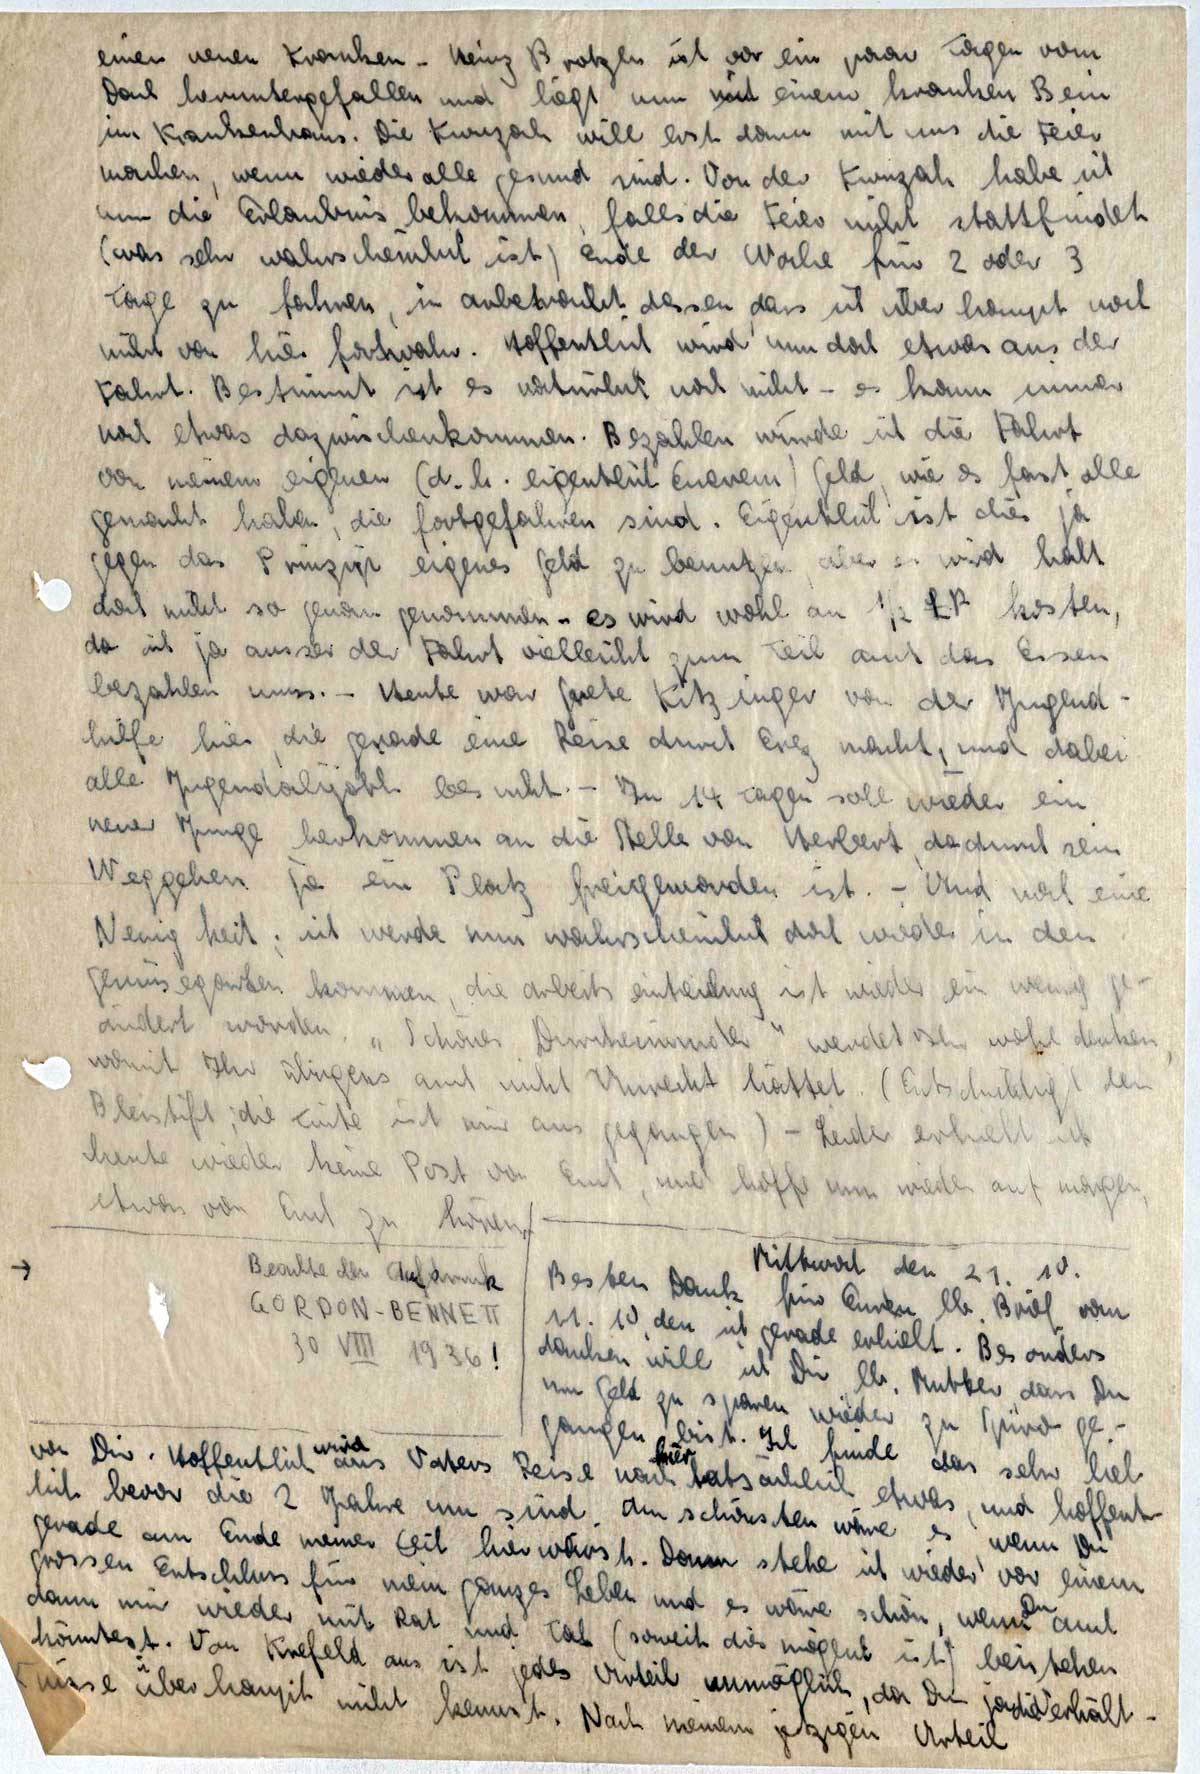 einen neuen Kranken - Heinz Brotzen ist vor ein paar Tagen vom
Dach heruntergefallen und liegt nun mit einem kranken Bein
im Krankenhaus. Die Kwuzah will erst dann mit uns die Feier
machen, wenn wieder alle gesund sind. Von der Kwuzah habe ich
nun die Erlaubnis bekommen, falls die Feier nicht stattfindet
(was sehr wahrscheinlich ist) Ende der Woche für 2 oder 3
Tage zu fahren, in anbetracht dessen, dass ich überhaupt noch
nicht von hier fortwahr. Hoffentlich wird nun doch etwas aus der
Fahrt. Bestimmt ist es natürlich noch nicht - es kann immer
noch etwas dazwischenkommen. Bezahlen würde ich die Fahrt
von meinem eigenen (d.h. eigentlich Euerem) Geld, wie es fast alle
gemacht haben, die fortgefahren sind. Eigentlich ist dies ja
gegen das Prinzip eigenes Geld zu benutzen, aber es wird halt
doch nicht so genau genommen - es wird wohl an 1/2 £P kosten,
da ich ja ausser der Fahrt vielleicht zum Teil auch das Essen
bezahlen muss. - Heute war Grete Kitzinger von der Jugend-
hilfe hier, die gerade eine Reise durch Erez macht, und dabei
alle Jugendalijoth besucht. - In 14 Tagen soll wieder ein
neuer Junge herkommen an die Stelle von Herbert, da durch sein
Weggehen ja ein Platz freigeworden ist. - Und noch eine
Neuigkeit: ich werde nun wahrscheinlich doch wieder in den
Gemüsegarten kommen, die Arbeitseinteilung ist wieder ein wenig ge-
ändert worden. "Schönes Durcheinander" werdet Ihr wohl denken,
womit Ihr übrigens auch nicht Unrecht hättet. (Entschuldigt den
Bleistift; die Tinte ist mir ausgegangen) - Leider erhielt ich
heute wieder keine Post von Euch, und hoffe nun wieder auf morgen,
etwas von Euch zu hören. -
→ Beachte den Aufdruck
GORDON-BENNETT
30 VIII 1936!
Mittwoch den 21. 10.
Besten Dank für Euren lb. Brief vom
11. 10, den ich gerade erhielt. Besonders
danken will ich Dir lb. Mutter dass Du
um Geld zu sparen wieder zu ge-
gangen bist. Ich finde das sehr lieb
von Dir. Hoffentlich wird aus Vaters Reise nach hier tatsächlich etwas, und hoffent-
lich bevor die 2 Jahre um sind. Am schönsten wäre es, wenn Du
gerade am Ende meiner Zeit hier wärst. Dann stehe ich wieder vor einem
grossen Entschluss für mein ganzes Leben und es wäre schön, wenn Du auch
dann mir wieder mit Rat und Tat (soweit dies möglich ist) beistehen
könntest. Von Krefeld aus ist jedes Urteil unmöglich, da Du ja die Verhält-
nisse überhaupt nicht kennst. Nach meinem jetzigen Urteil